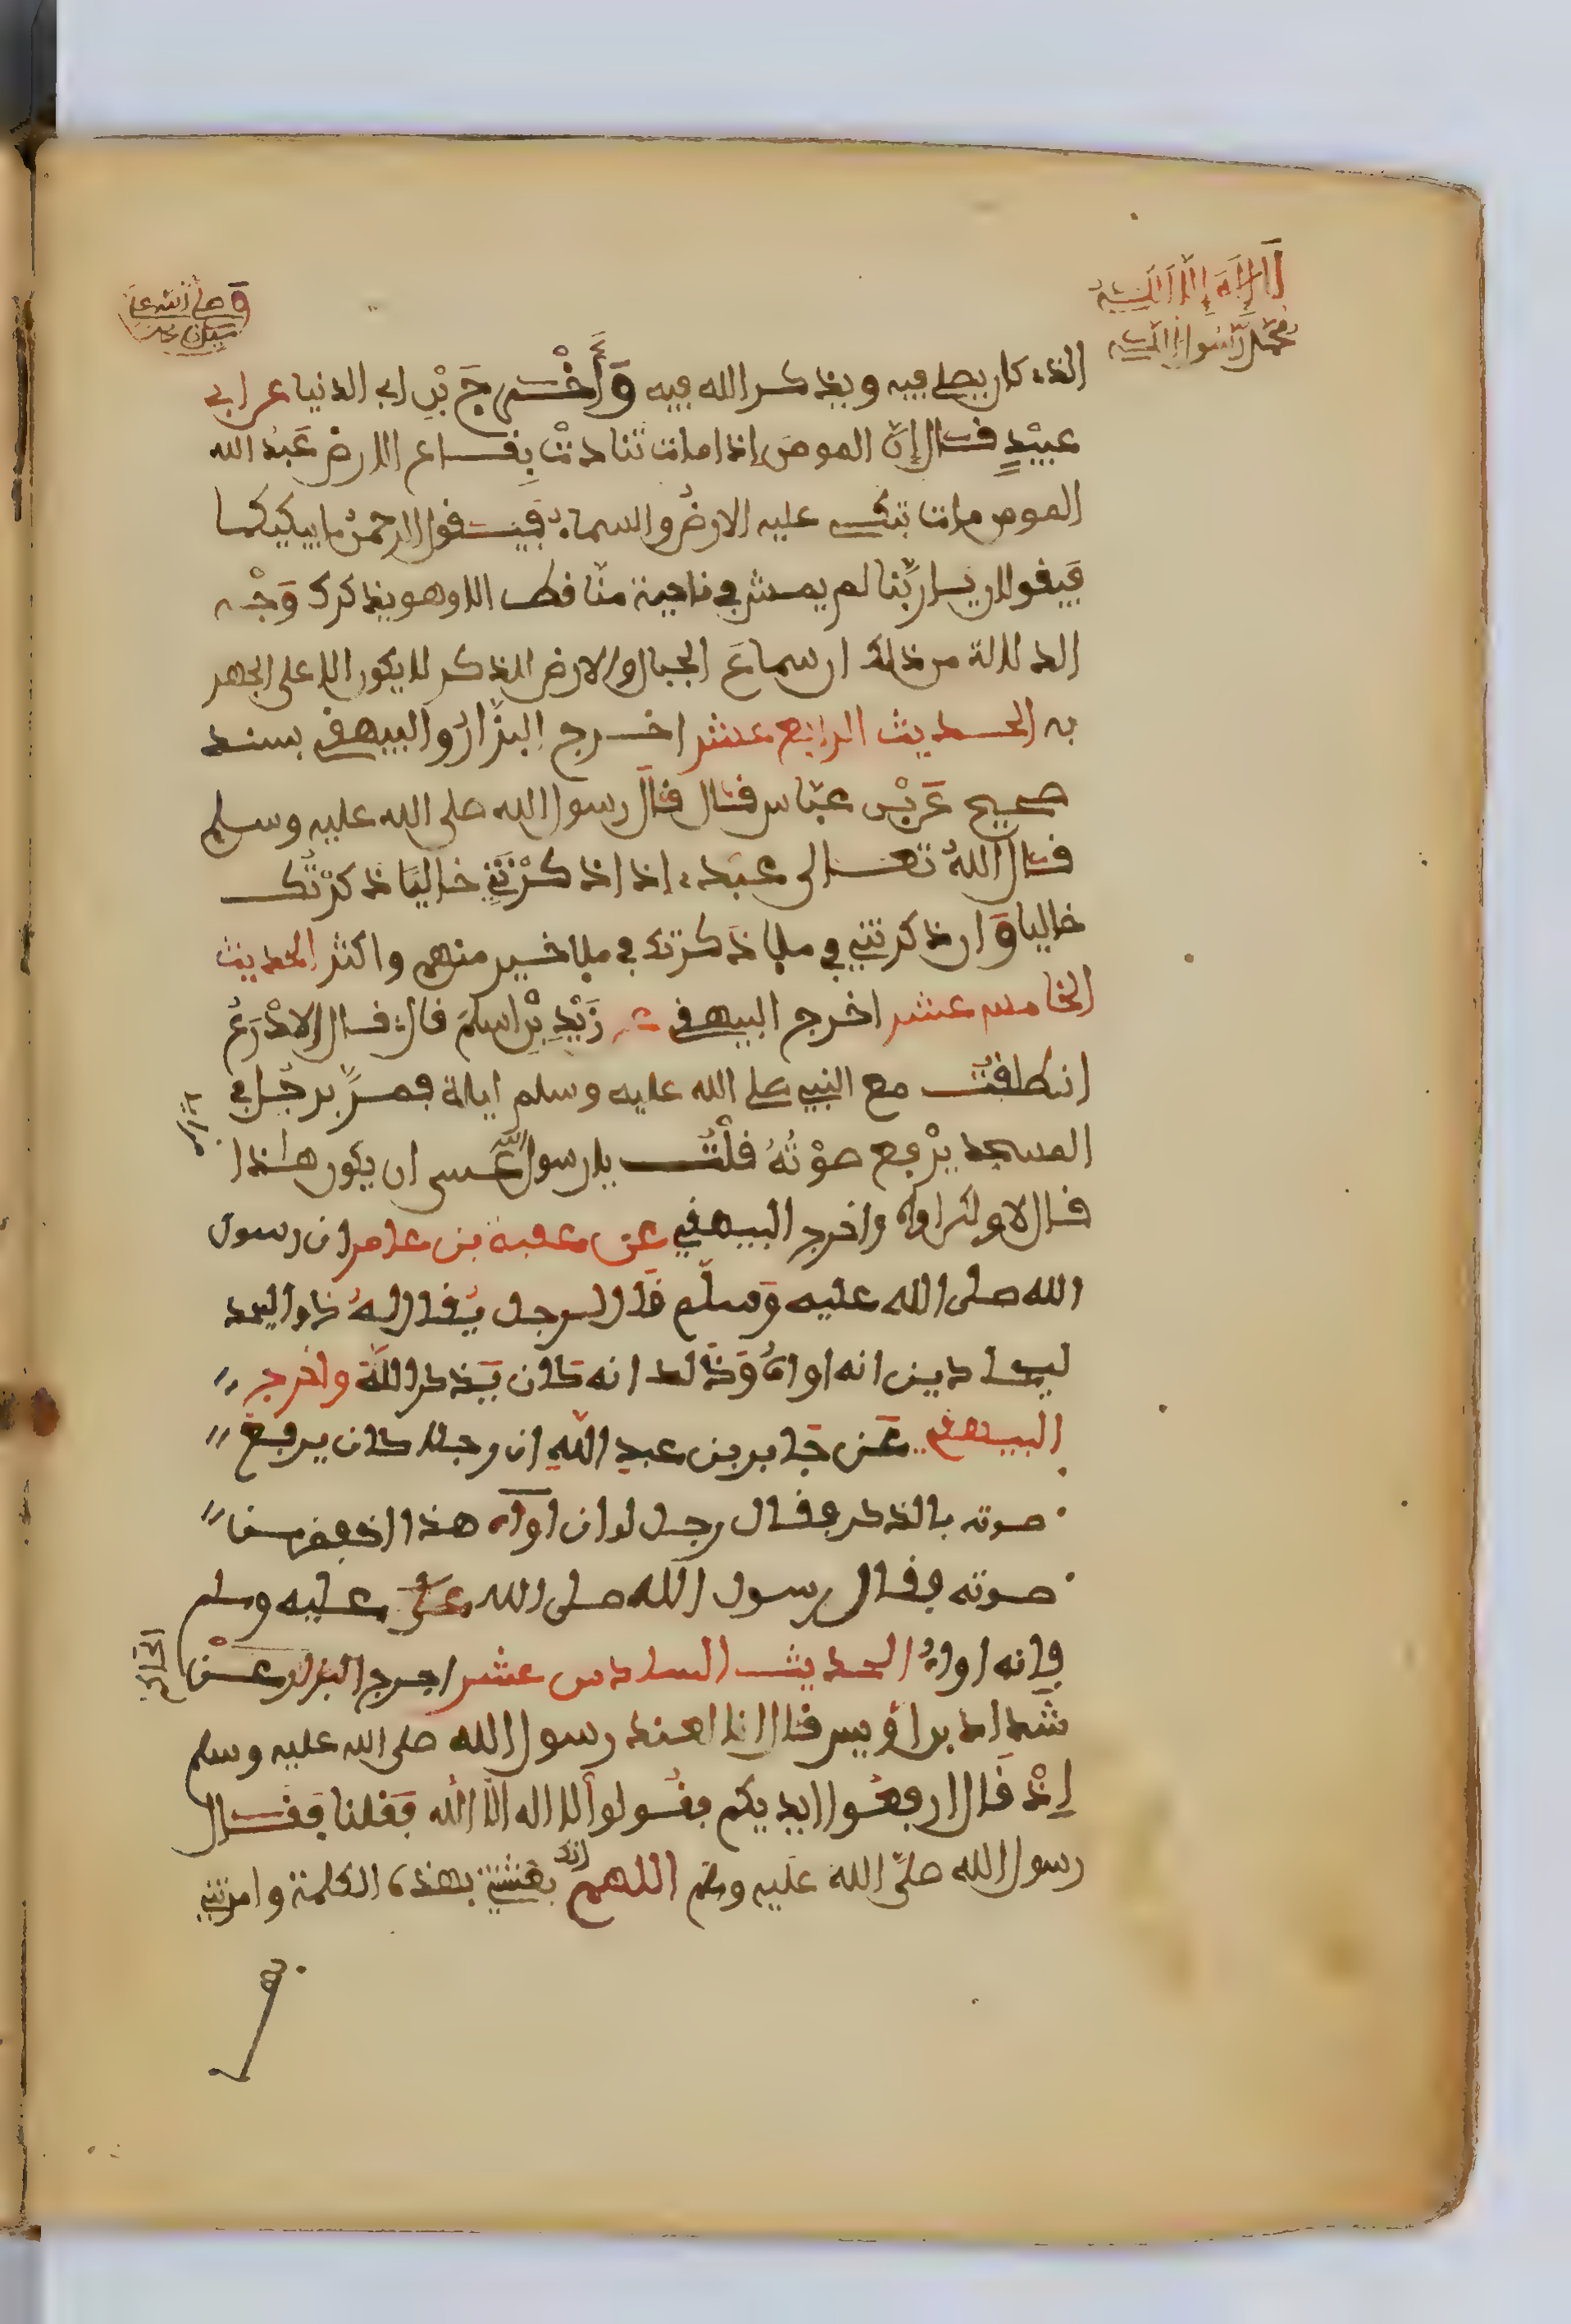 لَا إِلَهَ إِلَّا اللَّهُ
محمد رسول الله
وصلى الله على
سيدنا محمد
الذي كان يصلي فيه ويذكر الله فيه وَأَخْرَجَ ابْن ابي الدنيا عن ابي
عبيْدٍ قال إنّ المومن إذا مات تنادتْ بِقاع الارض عَبْدُ الله
المومن مات تبكى عليه الارضُ والسماء فيقول الرحمنُ ما يبكيكما
فيقولان يا ربَّنا لم يمش في ناحية منّا قط الا وهو يذكرك وَجْه
الدلالة من ذلك ان سماعَ الجبال والارض للذكر لا يكون الا على الجهر
به الحديث الرابع عشر اخرج البزّارُ والبيهقي بسند
صحيح عَن ابْن عبّاس قال قال رسول الله صلى الله عليه وسلم
قال اللهُ تعالى عبدي اذا ذكرْتَنِي خاليًا ذكرْتُك
خاليا وَان ذكرتني في ملإ ذكرتك في ملإ خير منهم واكثر الحديث
الخامس عشر اخرج البيهقي عن زَيْدِ بْن اسلم قال قال ابن الادْرَعُ
انطلقتُ مع النبي صلى الله عليه وسلم ليلة فمرّ برجُل في
المسجد يرْفع صوْتُهُ قلْتُ يا رسول الله عسى ان يكون هاذا
قال لا ولكن اواه واخرج البيهقي عن عقبة بن عامر ان رسول
الله صلى الله عليه وَسلّم قَال لرجل يُقال لهُ ذو اليجد
ليجادين انه اواهٌ وَذَلك انه كان يَذكر اللَّهَ واخرج
البيهقي عَن جَابر بن عبد اللّهِ ان رجلا كان يرفعُ
صوته بالذكر فقال رجل لو ان اواه هذا اخفض من
صوته فقال رسول الله صلى الله عليه وسلم
فإنه اواهٌ الحديث السادس عشر اخرج البزار عَنْ
شَداد بن أويس قال انا لعند رسول الله صلى الله عليه وسلم
إذْ قَال ارفعُوا ايديكم فقُولوا لا اله الا اللّه فَفلنا فَقال
رسول الله صلّى الله عَليه وسلم اللهم انك بعثتني بهذه الكلمة وامرتني